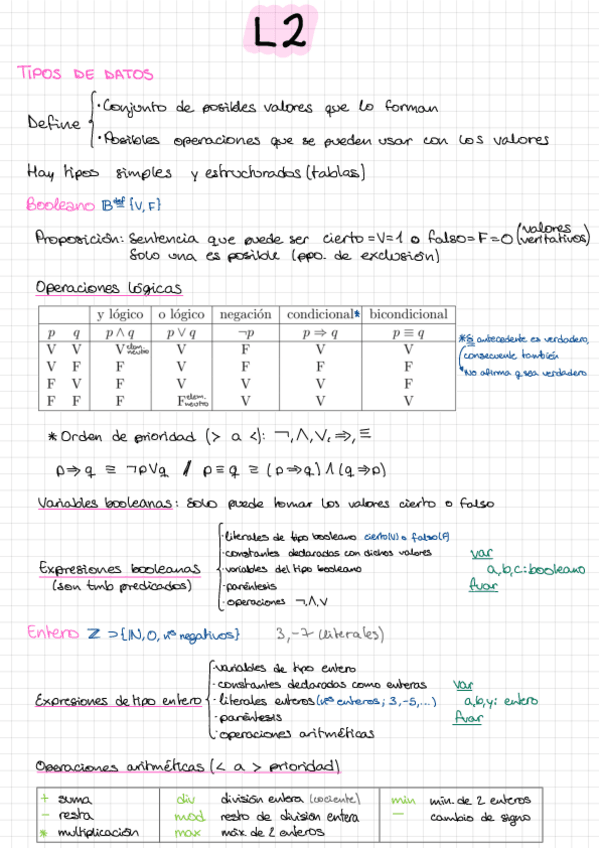 L2
TIPOS DE DATOS
Define
· Conjunto de posibles valores que lo forman
· Posibles operaciones que se pueden usar con los valores
Hay tipos simples y estructurados (tablas)
Booleano 𝔹 def= {V, F}
Proposición: Sentencia que puede ser cierto=V=1 o falso=F=0 (valores veritativos)
Solo una es posible (ppo. de exclusión)
Operaciones lógicas
y lógico o lógico negación condicional* bicondicional
p q p ∧ q p ∨ q ¬p p ⇒ q p ≡ q
V V V elem. neutro V F V V
V F F V F F F
F V F V V V F
F F F F elem. neutro V V V
*Si antecedente es verdadero,
consecuente también
*No afirma q sea verdadero
* Orden de prioridad (> a <): ¬, ∧, ∨, ⇒, ≡
p⇒q ≡ ¬p∨q / p≡q ≡ (p⇒q)∧(q⇒p)
Variables booleanas: Solo puede tomar los valores cierto o falso
Expresiones booleanas
(son tmb predicados)
· literales de tipo booleano cierto(V) o falso(F)
· constantes declaradas con dichos valores
· variables del tipo booleano
· paréntesis
· operaciones ¬, ∧, ∨
var
a,b,c: booleano
fvar
Entero ℤ ⊃ {ℕ, 0, nºs negativos} 3, -7 (literales)
Expresiones de tipo entero
· variables de tipo entero
· constantes declaradas como enteras
· literales enteros (nºs enteros; 3, -5, ...)
· paréntesis
· operaciones aritméticas
var
a,b,y: entero
fvar
Operaciones aritméticas (< a > prioridad)
+ suma div división entera (cociente) min mín. de 2 enteros
- resta mod resto de división entera - cambio de signo
* multiplicación max máx de 2 enteros